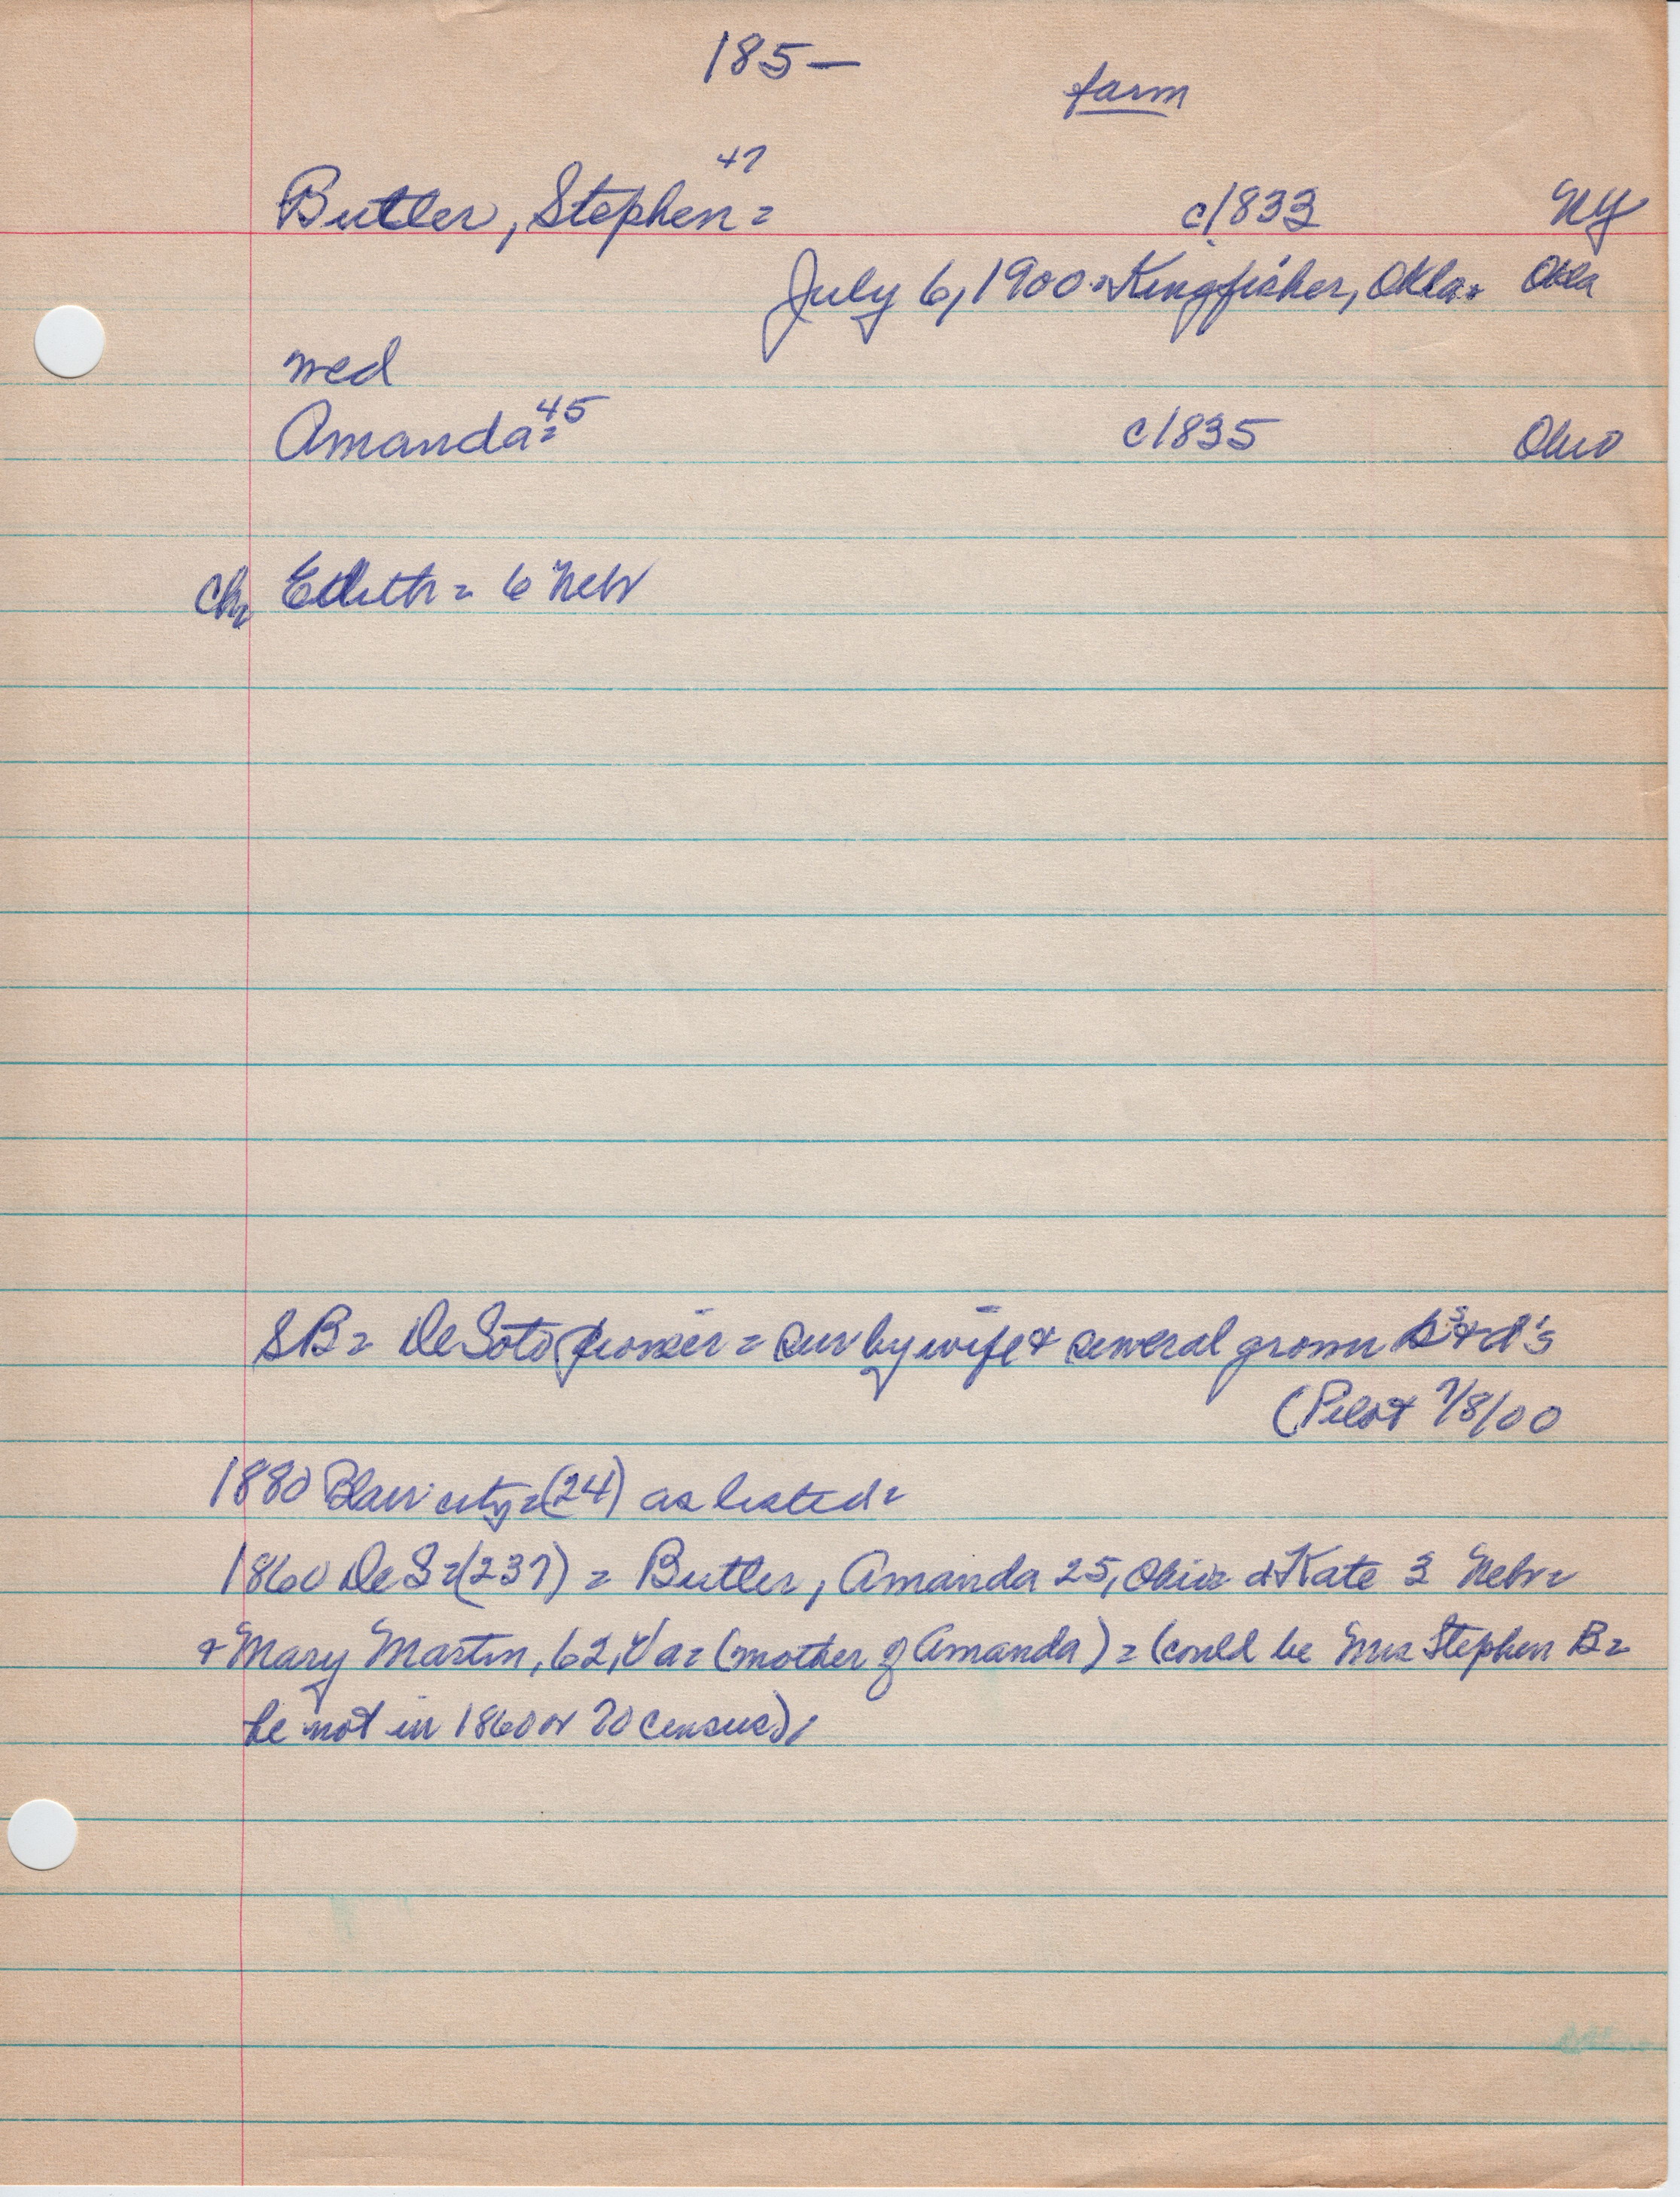 185—
farm
47
Butler, Stephen = c1833 NY
July 6, 1900 = Kingfisher, Okla. Okla
med
45
Amanda = c1835 Ohio
Ch, Edith = 6 Nebr
SB = DeSoto pioneer = sur by wife & several grown s's & d's
(Pilot 7/8/00
1880 Blair city = (24) as listed =
1860 DeS = (237) = Butler, Amanda 25, Ohio & Kate 3 Nebr =
& Mary Martin, 62, Va = (mother of Amanda) = (could be Mrs Stephen B =
he not in 1860 or 70 census),